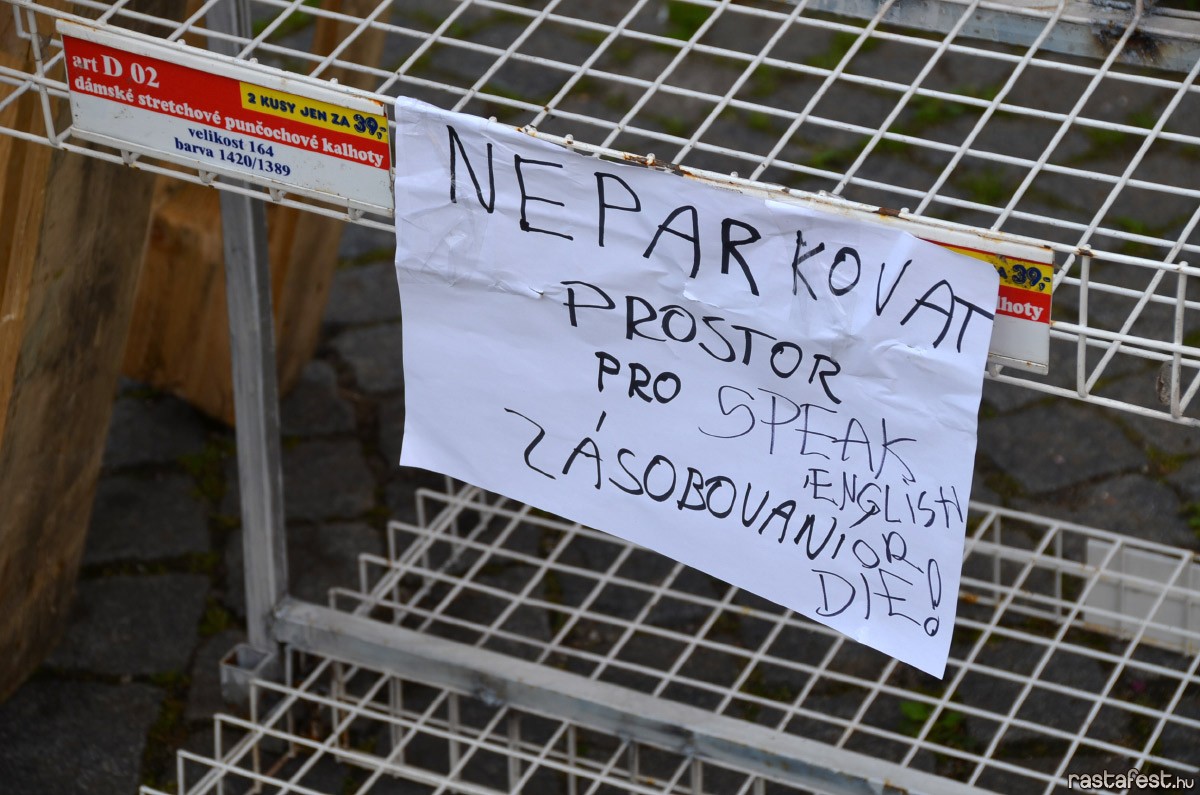 art D 02
dámské stretchové punčochové kalhoty
2 KUSY JEN ZA 39,-
velikost 164
barva 1420/1389
NEPARKOVAT
PROSTOR
PRO
ZÁSOBOVANÍ
SPEAK
ENGLISH
OR
DIE!
ZA 39,-
kalhoty
rastafest.hu